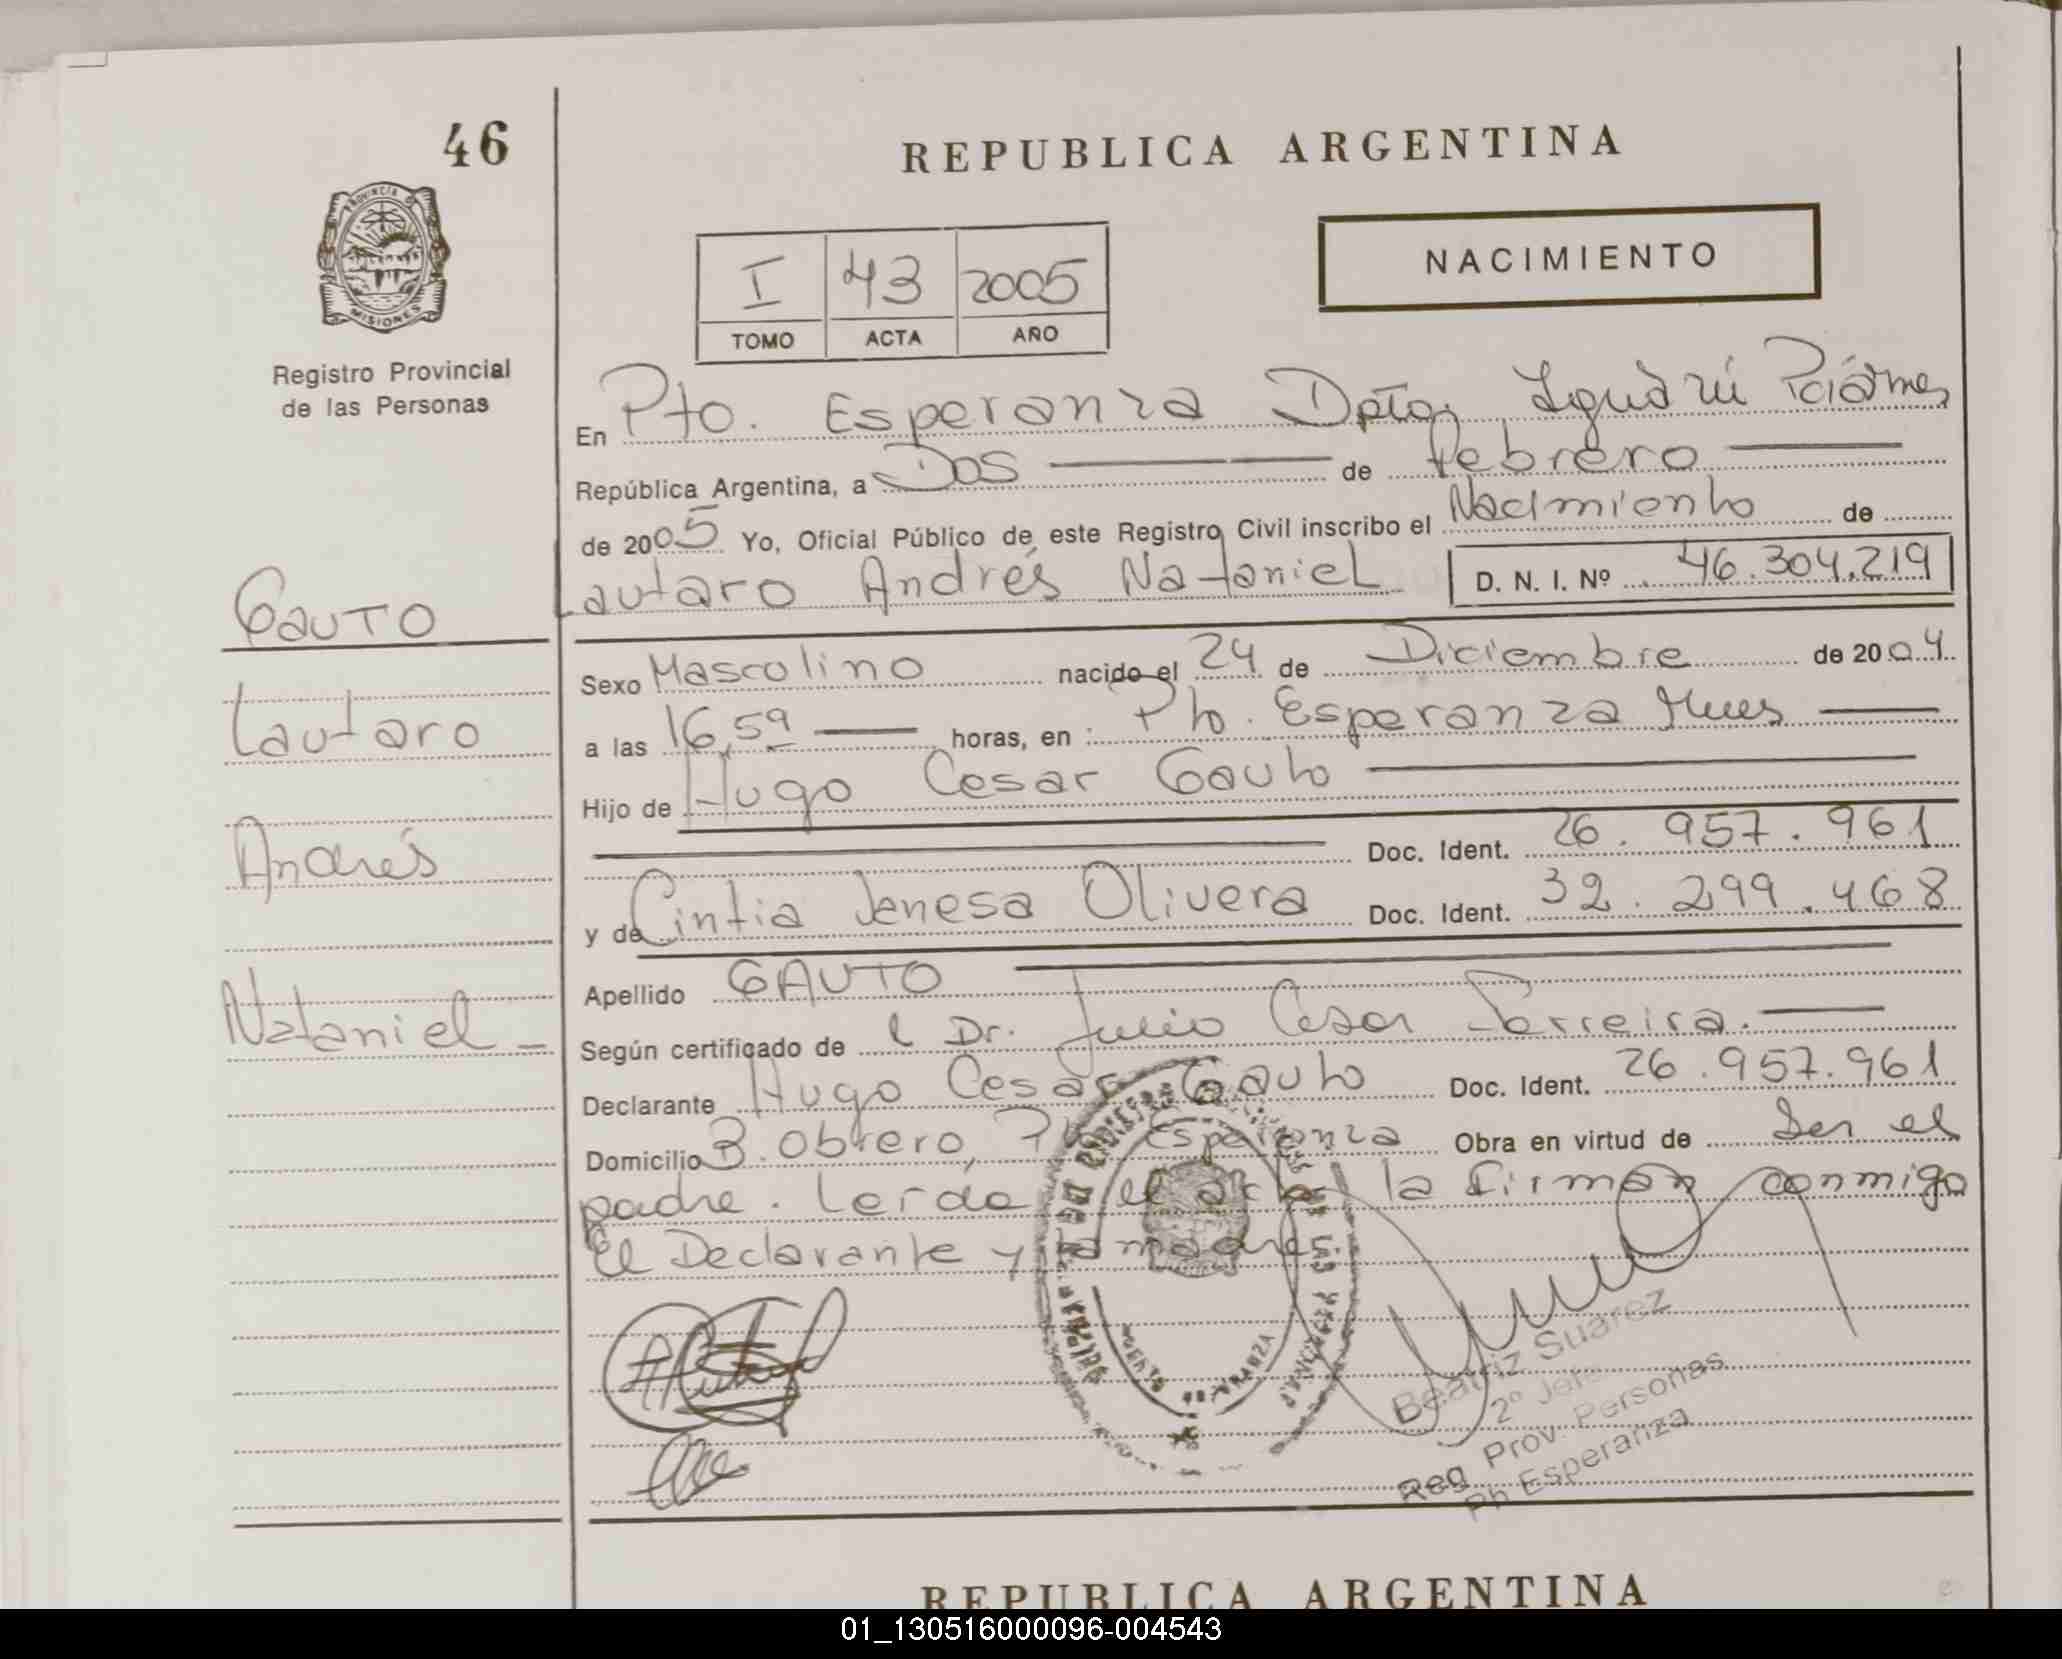 46
REPUBLICA ARGENTINA
PROVINCIA
MISIONES
Registro Provincial
de las Personas
I 43 2005
TOMO ACTA AÑO
NACIMIENTO
En Pto. Esperanza Dpto, Iguazú
República Argentina, a Dos de febrero
de 2005 Yo, Oficial Público de este Registro Civil inscribo el Nacimiento de
Lautaro Andrés Nataniel D. N. I. Nº 46.304.219
GAUTO
Lautaro
Andrés
Nataniel
Sexo Masculino nacido el 24 de Diciembre de 2004
a las 16,59 horas, en : Pto. Esperanza Mnes
Hijo de Hugo Cesar Gauto
Doc. Ident. 26.957.961
y de Cintia Janesa Olivera Doc. Ident. 32.299.468
Apellido GAUTO
Según certificado de l Dr. Julio Cesar Ferreira.
Declarante Hugo Cesar Gauto Doc. Ident. 26.957.961
Domicilio B. Obrero, Pto. Esperanza Obra en virtud de Ser el
padre. Leida el acta la firman conmigo
El Declarante y la madre.
Beatriz Suarez
2º Jefe
Reg Prov. Personas
Esperanza
REPUBLICA ARGENTINA
01_130516000096-004543